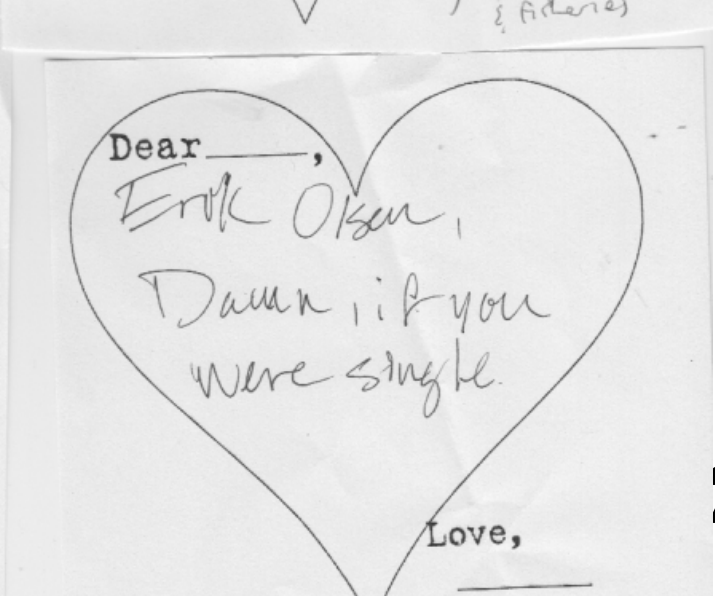 & Fisheries
Dear_____,
Erik Olsen,
Damn, if you
were single.
Love,
_____